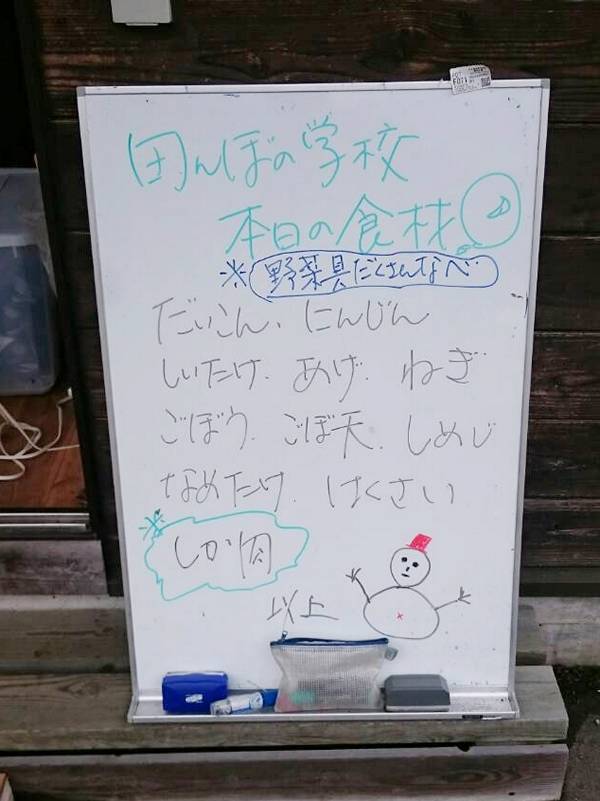 田んぼの学校
本日の食材
※野菜具だくさんなべ
だいこん、にんじん
しいたけ、あげ、ねぎ
ごぼう、ごぼ天、しめじ
なめたけ、はくさい
※しか肉
以上